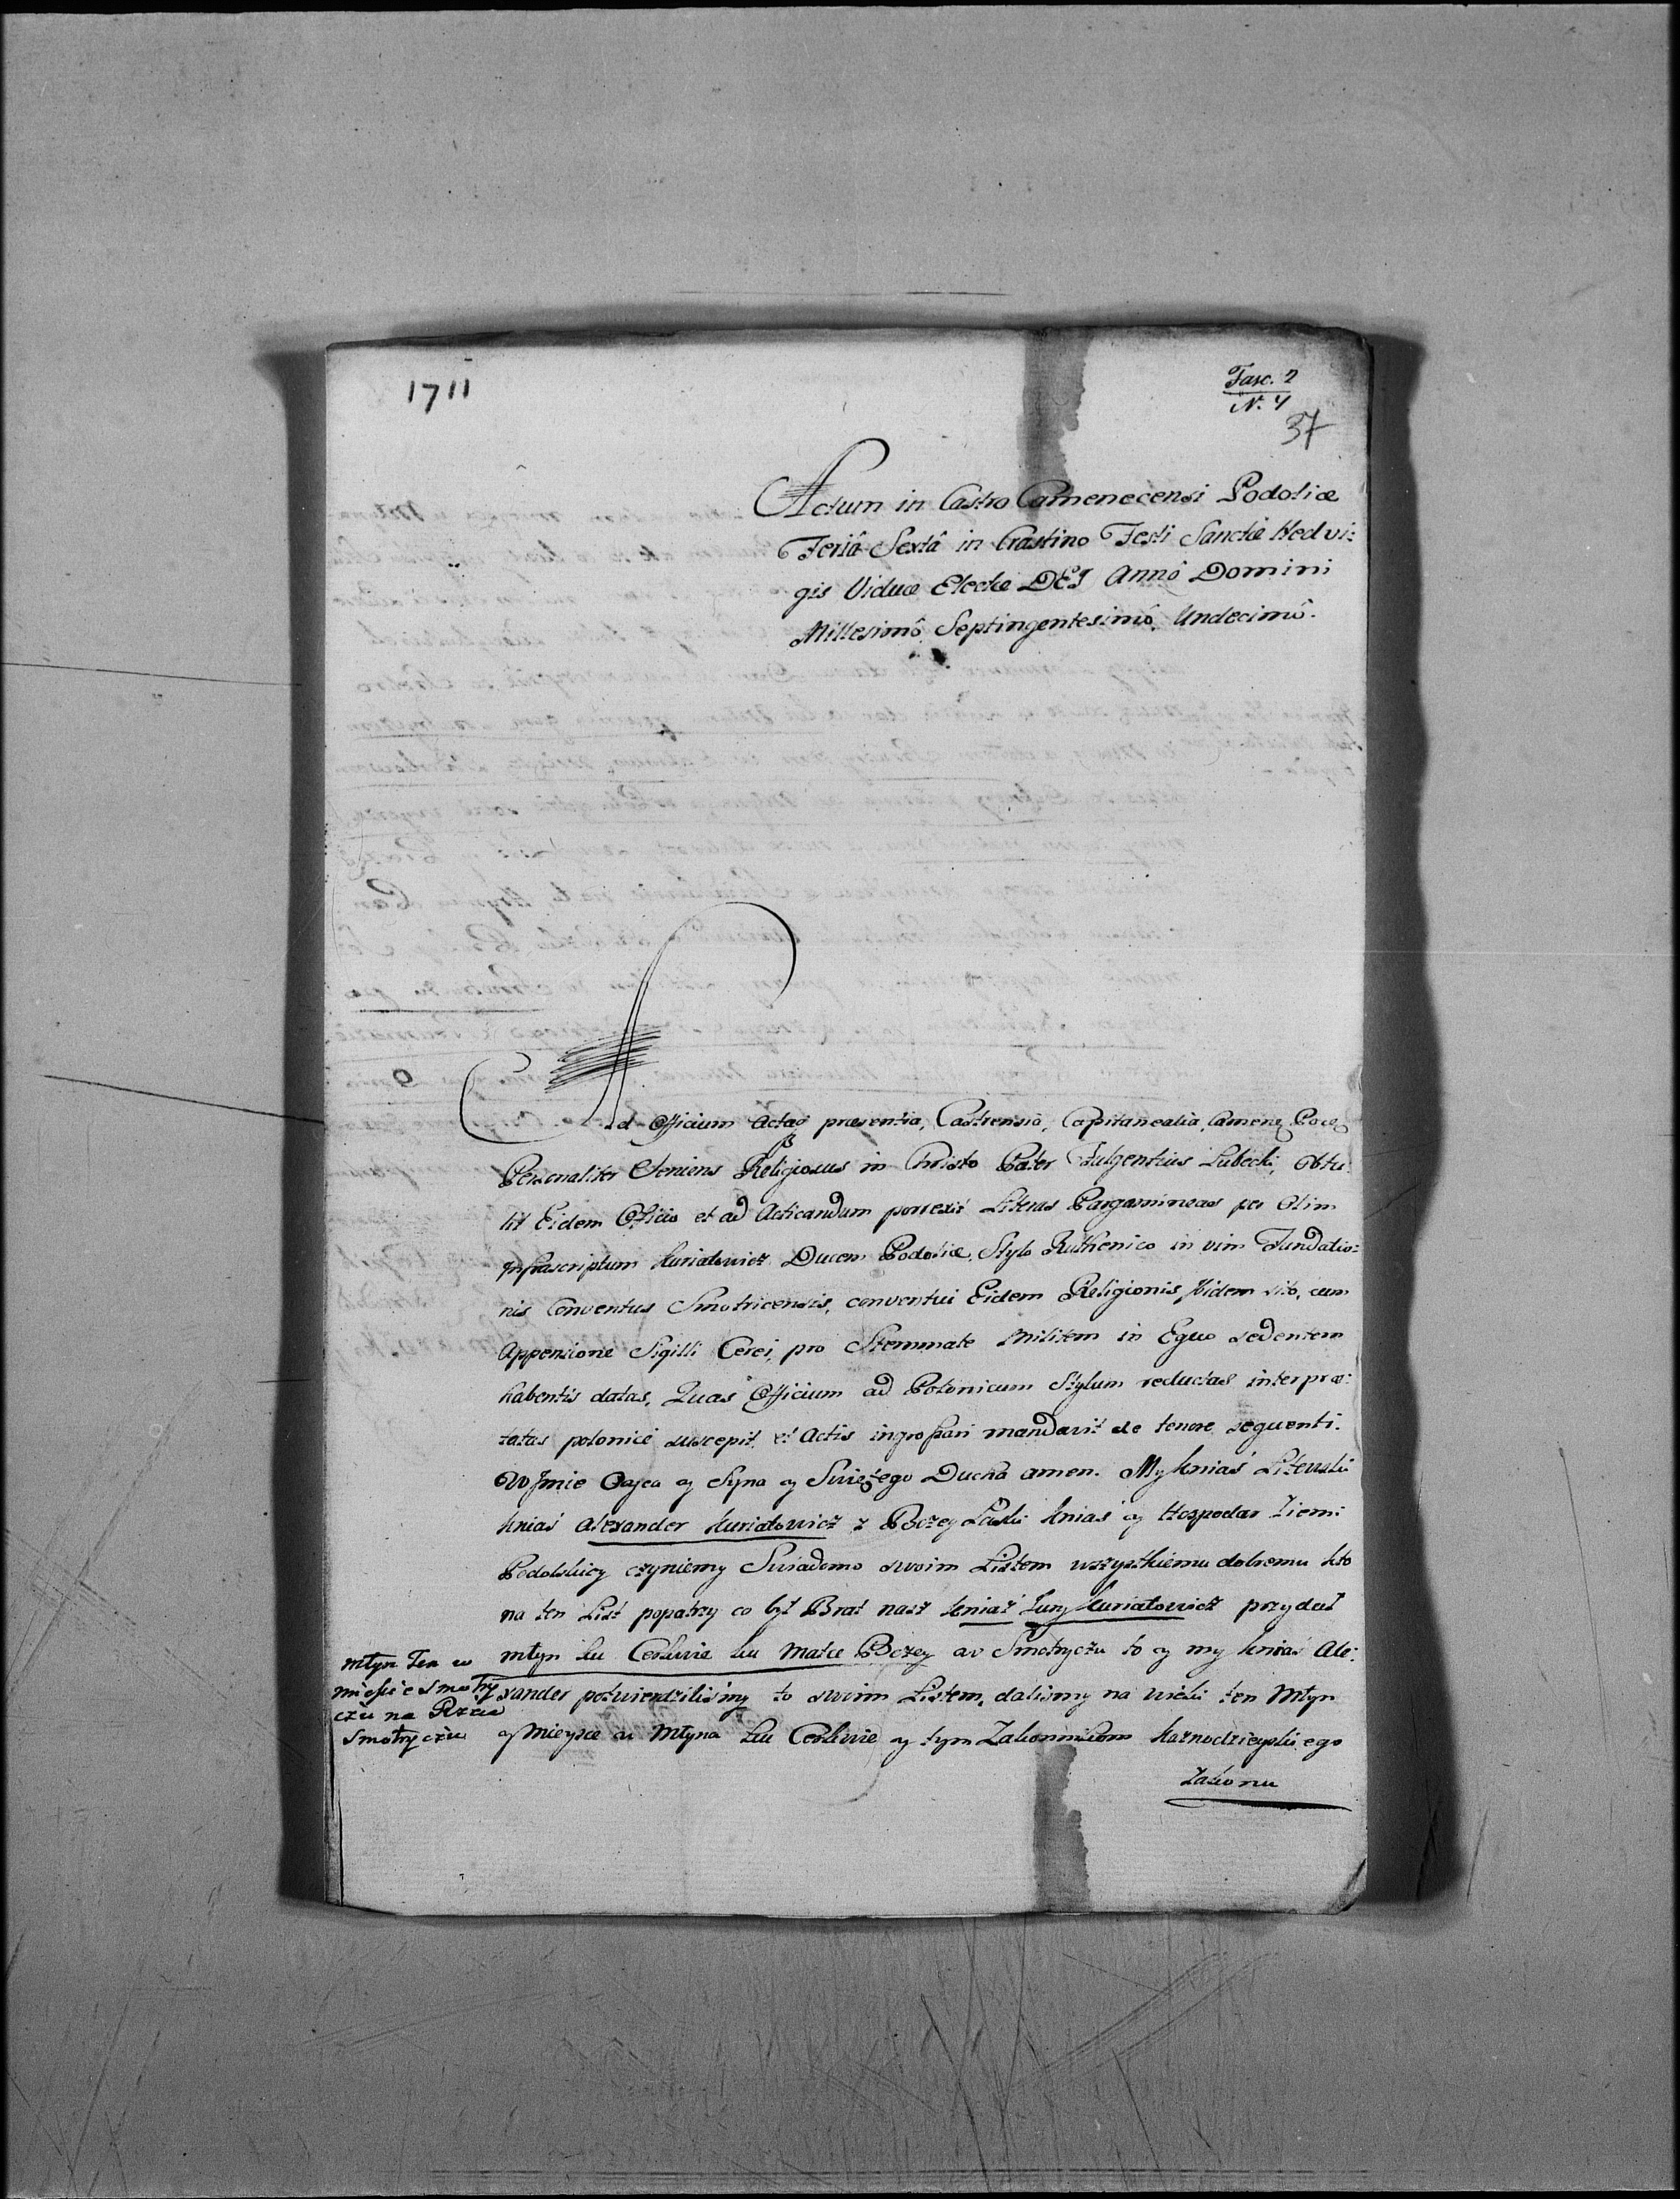 1711
Fasc. 2
N. 4
37
Actum in Castro Camenecensi Podoliæ
Feriâ Sextâ in Crastino Festi Sanctæ Hedvi:
gis Viduæ Electæ DEI Annô Domini
Millesimô Septingentesimô Undecimô.
Ad Officium Actaq præsentia, Castrensia, Capitanealia, Camene, Podo
Personaliter Veniens Religiosus in Christo Pater Fulgentius Lubecki, obtu:
lit Eidem Officio et ad Acticandum porrexit Literas Pargamineas per olim
Infrascriptum Kuriatowicz Ducem Podoliæ, Stylo Ruthenico in vim Fundatio:
nis Conventus Smotricensis, conventui Eidem Religionis ibidem sito, cum
Appensione Sigilli Cerei, pro Stemmate Militem in Equo sedentem
habentis datas, Quas Officium ad Polonicum Stylum reductas interpræ:
tatas polonicè suscepit et Actis ingrossari mandavit de tenore sequenti.
W Jmie Oyca y Syna y Swiętego Ducha amen. My Knias Litewski
Knias Alexander Kuriatowicz z Bożey Łaski Knias y Hospodar Ziemi
Podolskiey czyniemy Swiadomo swoim Listem wszystkiemu dobremu kto
na ten List popatrzy co był Brat nasz Kniaz Jury Kuriatowicz przydał
młyn ku Cerkwie ku Matce Bożey w Smotryczu to y my Knias Ale:
xander potwierdziliśmy to swoim Listem, daliśmy na wieki ten Młyn
y Mieysce w Młyna ku Cerkwie y tym Zakonnikom kaznodzieyskiego
Zakonu
Młyn Ten w
mieście Smotry
czu na Rzece
Smotryczu